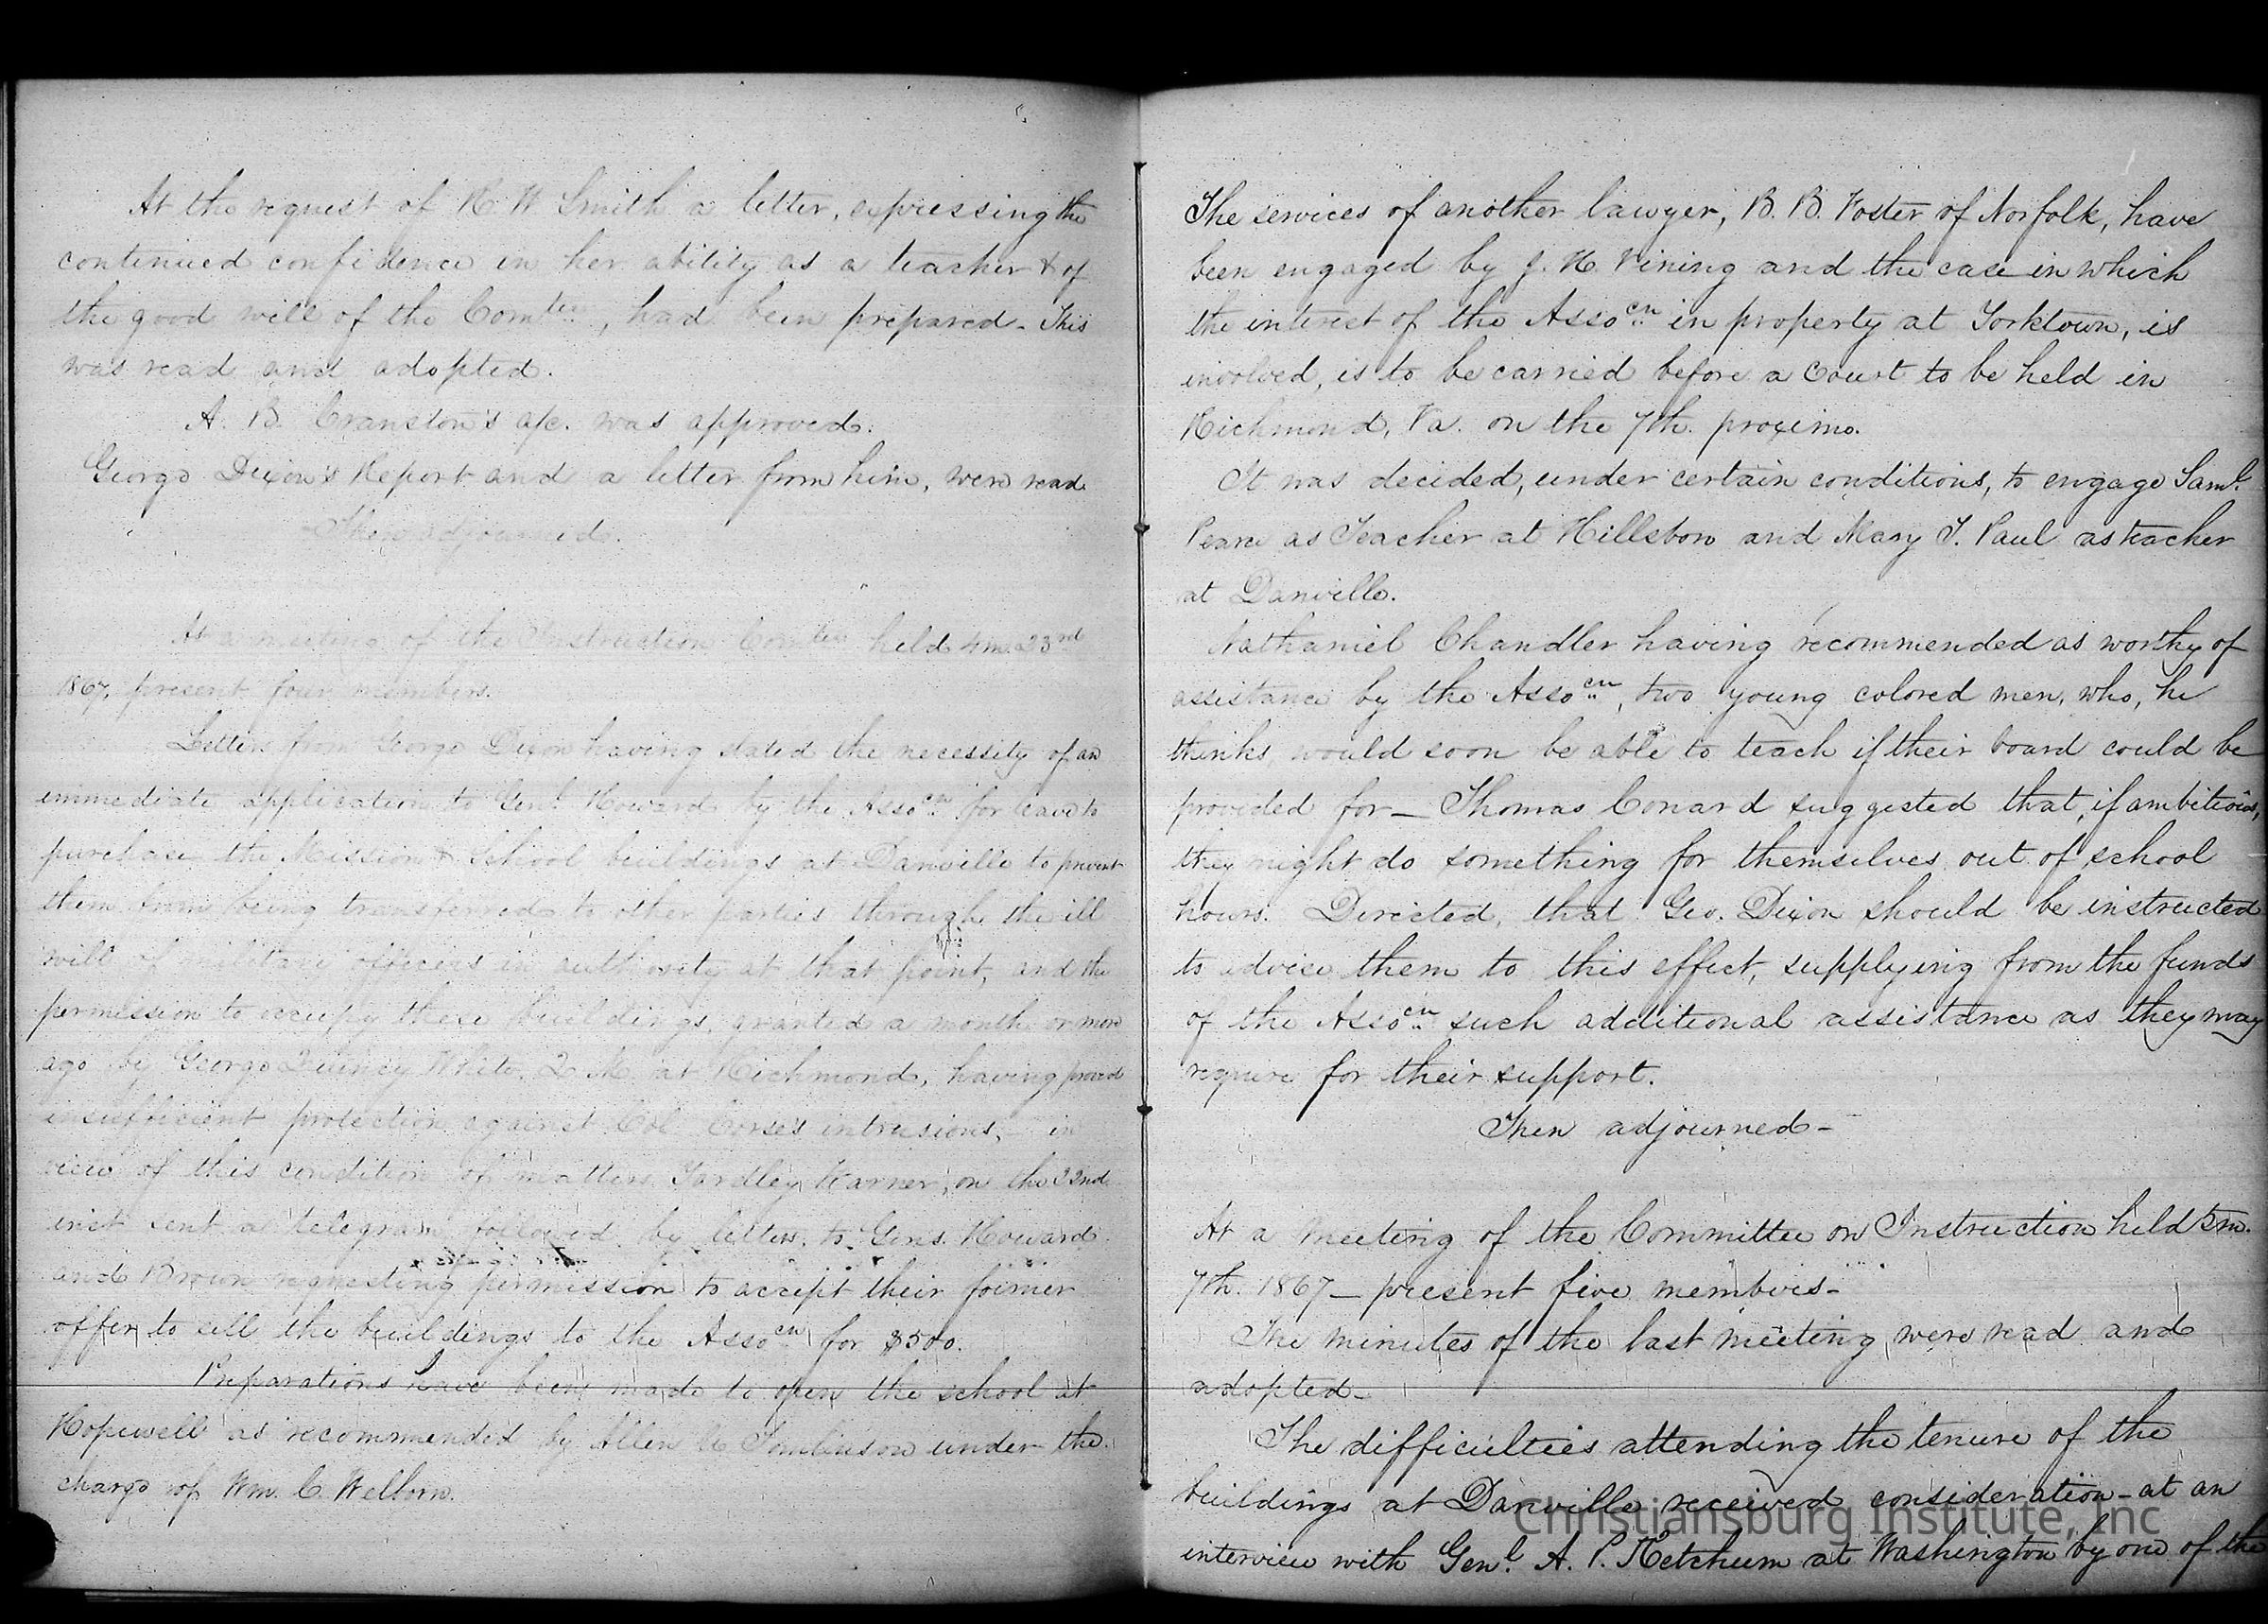 At the request of R W Smith a letter, expressing the
continued confidence in her ability as a teacher & of
the good will of the Comtee, had been prepared - This
was read and adopted.
A. B. Cranston's a/c. was approved.
George Dixon's Report and a letter from him, were read.
Then adjourned.
At a meeting of the Instruction Comtee held 4m. 23rd
1867, present four members.
Letters from George Dixon having stated the necessity of an
immediate application to Genl. Howard by the Assocn for leave to
purchase the Mission & School buildings at Danville to prevent
them from being transferred to other parties through the ill
will of military officers in authority at that point, and the
permission to occupy these buildings, granted a month or more
ago by George Quincy White, Q M at Richmond, having proved
insufficient protection against Col Corse's intrusions, - in
view of this condition of matters Yardley Warner, on the 22nd
inst sent a telegram followed by letters, to Gens. Howard
and Brown requesting permission to accept their former
offer to sell the buildings to the Assocn for $500.
Preparations have been made to open the school at
Hopewell as recommended by Allen U Tomlinson under the
charge of Wm. C. Welborn.
The services of another lawyer, B. B. Foster of Norfolk, have
been engaged by J. H. Vining and the case in which
the interest of the Assocn in property at Yorktown, is
involved, is to be carried before a Court to be held in
Richmond, Va. on the 7th. proximo.
It was decided, under certain conditions, to engage Saml.
Pearce as Teacher at Hillsboro and Mary T. Paul as teacher
at Danville.
Nathaniel Chandler having recommended as worthy of
assistance by the Assocn, two young colored men, who, he
thinks, would soon be able to teach if their board could be
provided for - Thomas Conard suggested that, if ambitious,
they might do something for themselves out of school
hours. Directed, that Geo. Dixon should be instructed
to advise them to this effect, supplying from the funds
of the Assocn such additional assistance as they may
require for their support.
Then adjourned -
At a meeting of the Committee on Instruction held 5m.
7th. 1867 - present five members -
The minutes of the last meeting were read and
adopted -
The difficulties attending the tenure of the
buildings at Danville received consideration - at an
interview with Genl. A. P. Ketchum at Washington by one of the
Christiansburg Institute, Inc